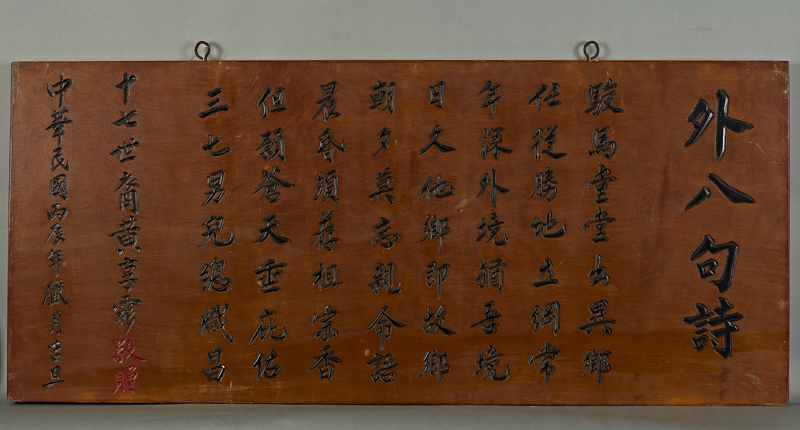 外八句詩
駿馬堂堂出異鄉
任從勝地立綱常
年深外境猶吾境
日久他鄉即故鄉
朝夕莫忘親命語
晨昏須荐祖宗香
但願蒼天垂庇佑
三七男兒總熾昌
十七世裔黃享 敬贈
中華民國丙辰年臘月吉旦